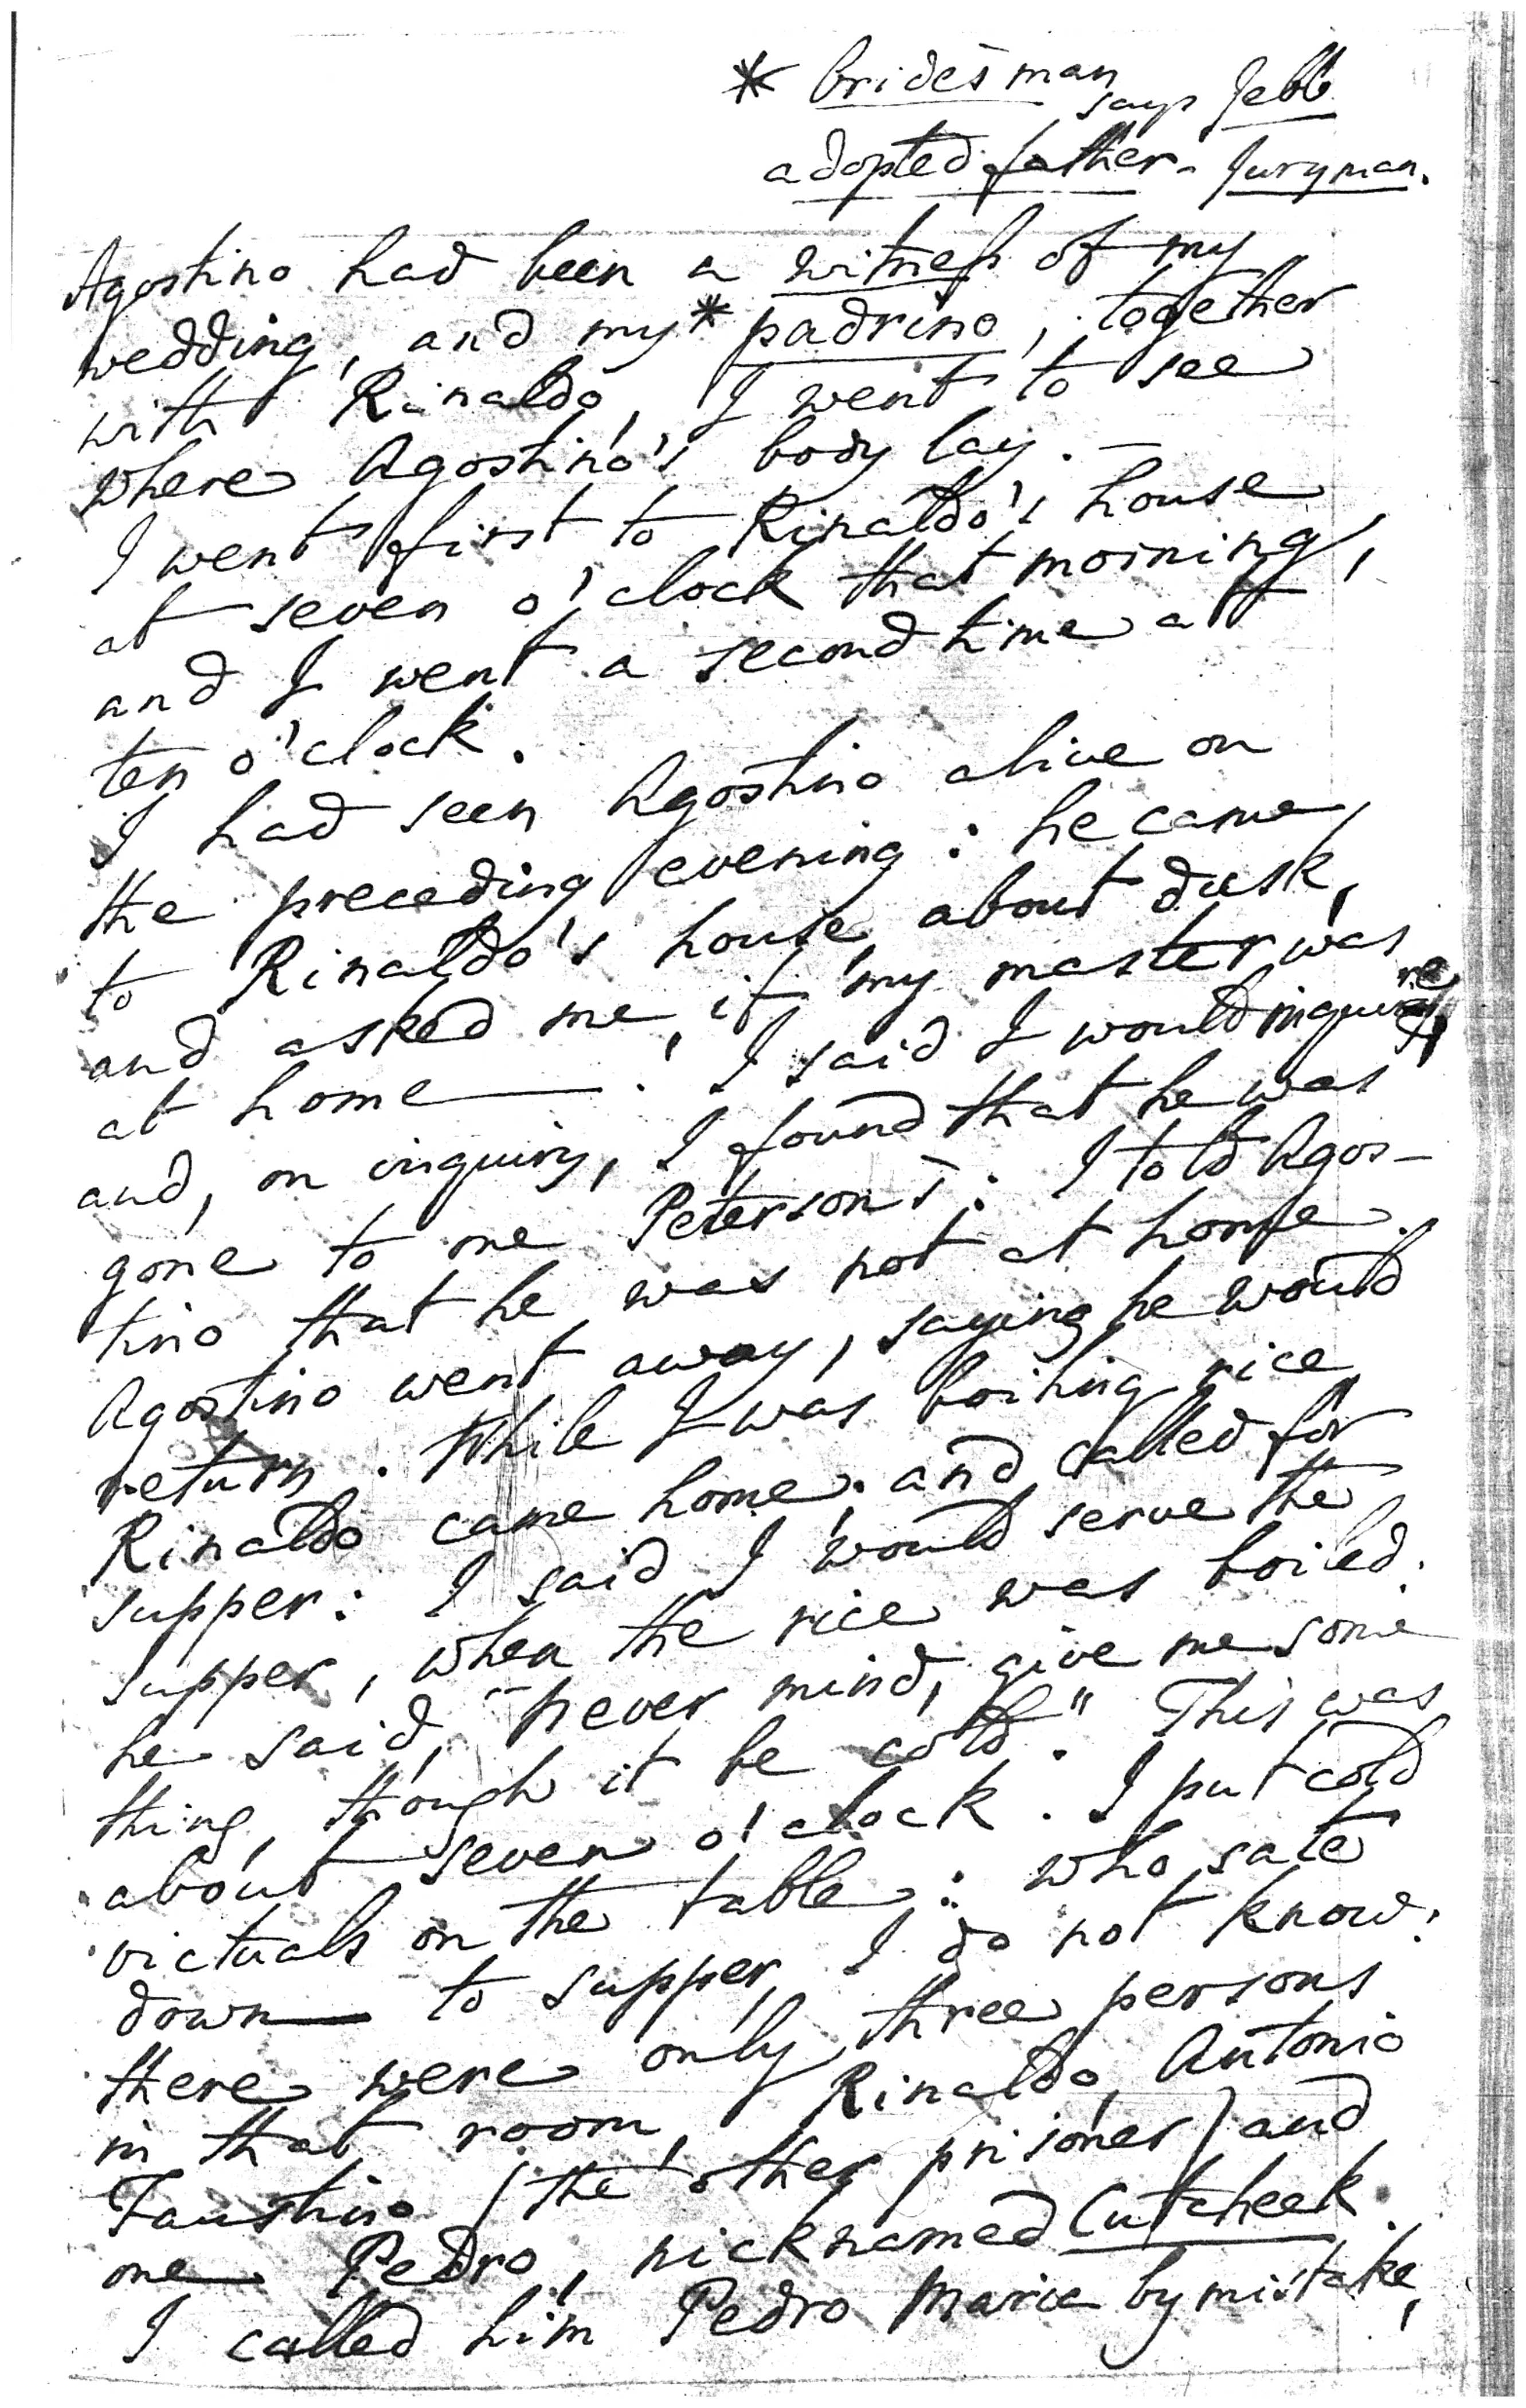 * bridesman says Jebb
adopted father - Juryman.
Agostino had been a witness of my
wedding, and my * padrino, together
with Rinaldo, I went to see
where Agostino's body lay. —
I went first to Rinaldo's house
at seven o'clock that morning,
and I went a second time at
ten o'clock.
I had seen Agostino alive on
the preceding evening: he came,
to Rinaldo's house, about dusk,
and asked me, if my master was
at home —. I said I would inquire,
and, on inquiry, I found that he was
gone to one Peterson's: I told Agos-
tino that he was not at home.
Agostino went away, saying he would
return. While I was boiling rice,
Rinaldo came home, and called for
supper: I said I would serve the
supper, when the rice was boiled.
he said, "never mind, give me some
thing, though it be cold." This was
about seven o'clock. I put cold
victuals on the table: who sate
down to supper, I do not know.
there were only three persons
in that room, Rinaldo, Antonio
Faustino (the other prisoner) and
one Pedro, nicknamed Cutcheek.
I called him Pedro Maria by mistake,